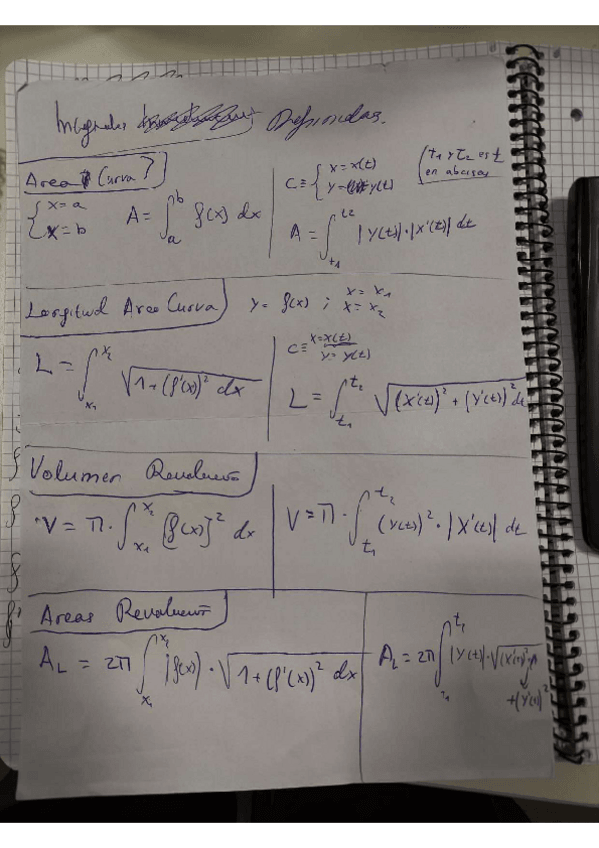 Integrales Definidas.
Area Curva?
{ x = a
x = b
A = ∫_a^b f(x) dx
C ≡ { x = x(t)
y = y(t)
t1 y t2 es t
en abcisas
A = ∫_{t1}^{t2} |y(t)|·|x'(t)| dt
Longitud Arco Curva
y = f(x) ; x = x1
x = x2
L = ∫_{x1}^{x2} √(1+(f'(x))² dx
C ≡ x=x(t)
y = y(t)
L = ∫_{t1}^{t2} √((x'(t))² + (y'(t))² dt
Volumen Revolución
V = π · ∫_{x1}^{x2} [f(x)]² dx
V = π · ∫_{t1}^{t2} (y(t))² · |x'(t)| dt
Areas Revolución
A_L = 2π ∫_{x1}^{x2} |f(x)| · √(1+(f'(x))² dx
A_L = 2π ∫_{t1}^{t2} |y(t)|·√((x'(t))²
+(y'(t))²